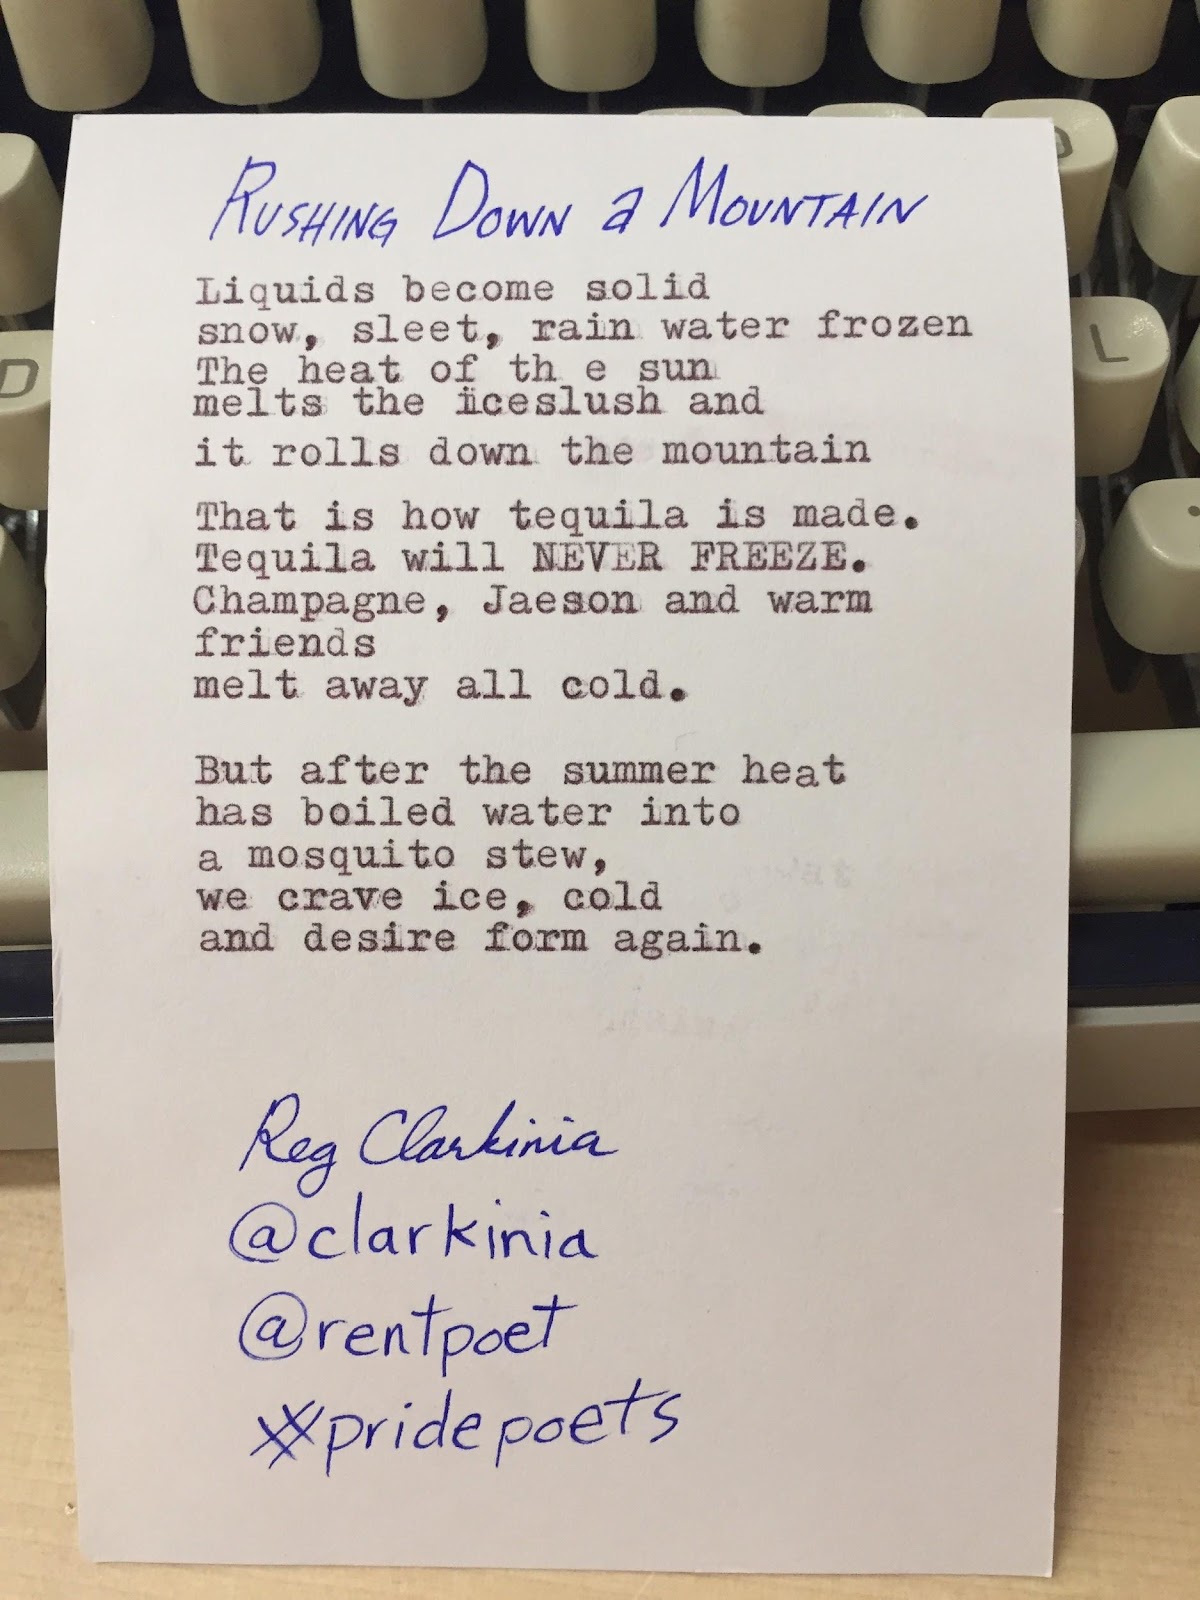 Rushing Down a Mountain
Liquids become solid
snow, sleet, rain water frozen
The heat of th e sun
melts the iceslush and
it rolls down the mountain
That is how tequila is made.
Tequila will NEVER FREEZE.
Champagne, Jaeson and warm
friends
melt away all cold.
But after the summer heat
has boiled water into
a mosquito stew,
we crave ice, cold
and desire form again.
Reg Clarkinia
@clarkinia
@rentpoet
#pridepoets
D
L